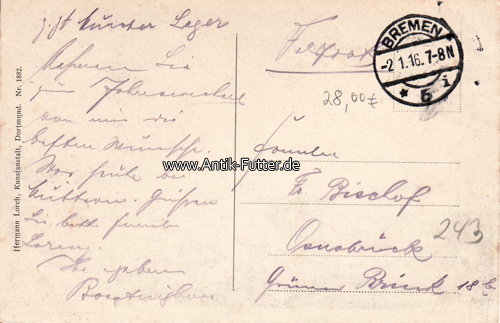 z. Zt. Munster Lager
Nehmen Sie
zum Jahreswechsel
von mir die
besten Wünsche.
War heute bei
Grüßen
Sie bitte Familie
Lorenz.
Ihr ergebener
Hermann Lorch, Kunstanstalt, Dortmund. Nr. 1882.
Feldpost
BREMEN
-2.1.16.7-8N
* 5 i
28,00 €
www.Antik-Futter.de
Familie
Fr. Bischof
Osnabrück
Grüner Brink 18
243